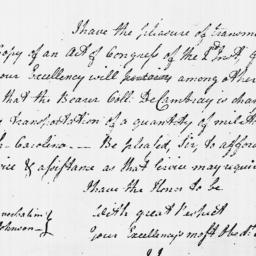 I have the pleasure of transm
Copy of an Act of Congress of the 2d Inst,
our Excellency will among other
that the Bearer Coll: DeCambray is char
Transportation of a quantity of milit
Carolina. — Be pleased, Sir, to afford
ice & assistance as that service may requir
I have the Honor to be
With great Respect
Johnson
Your Excellency's most Obedt.